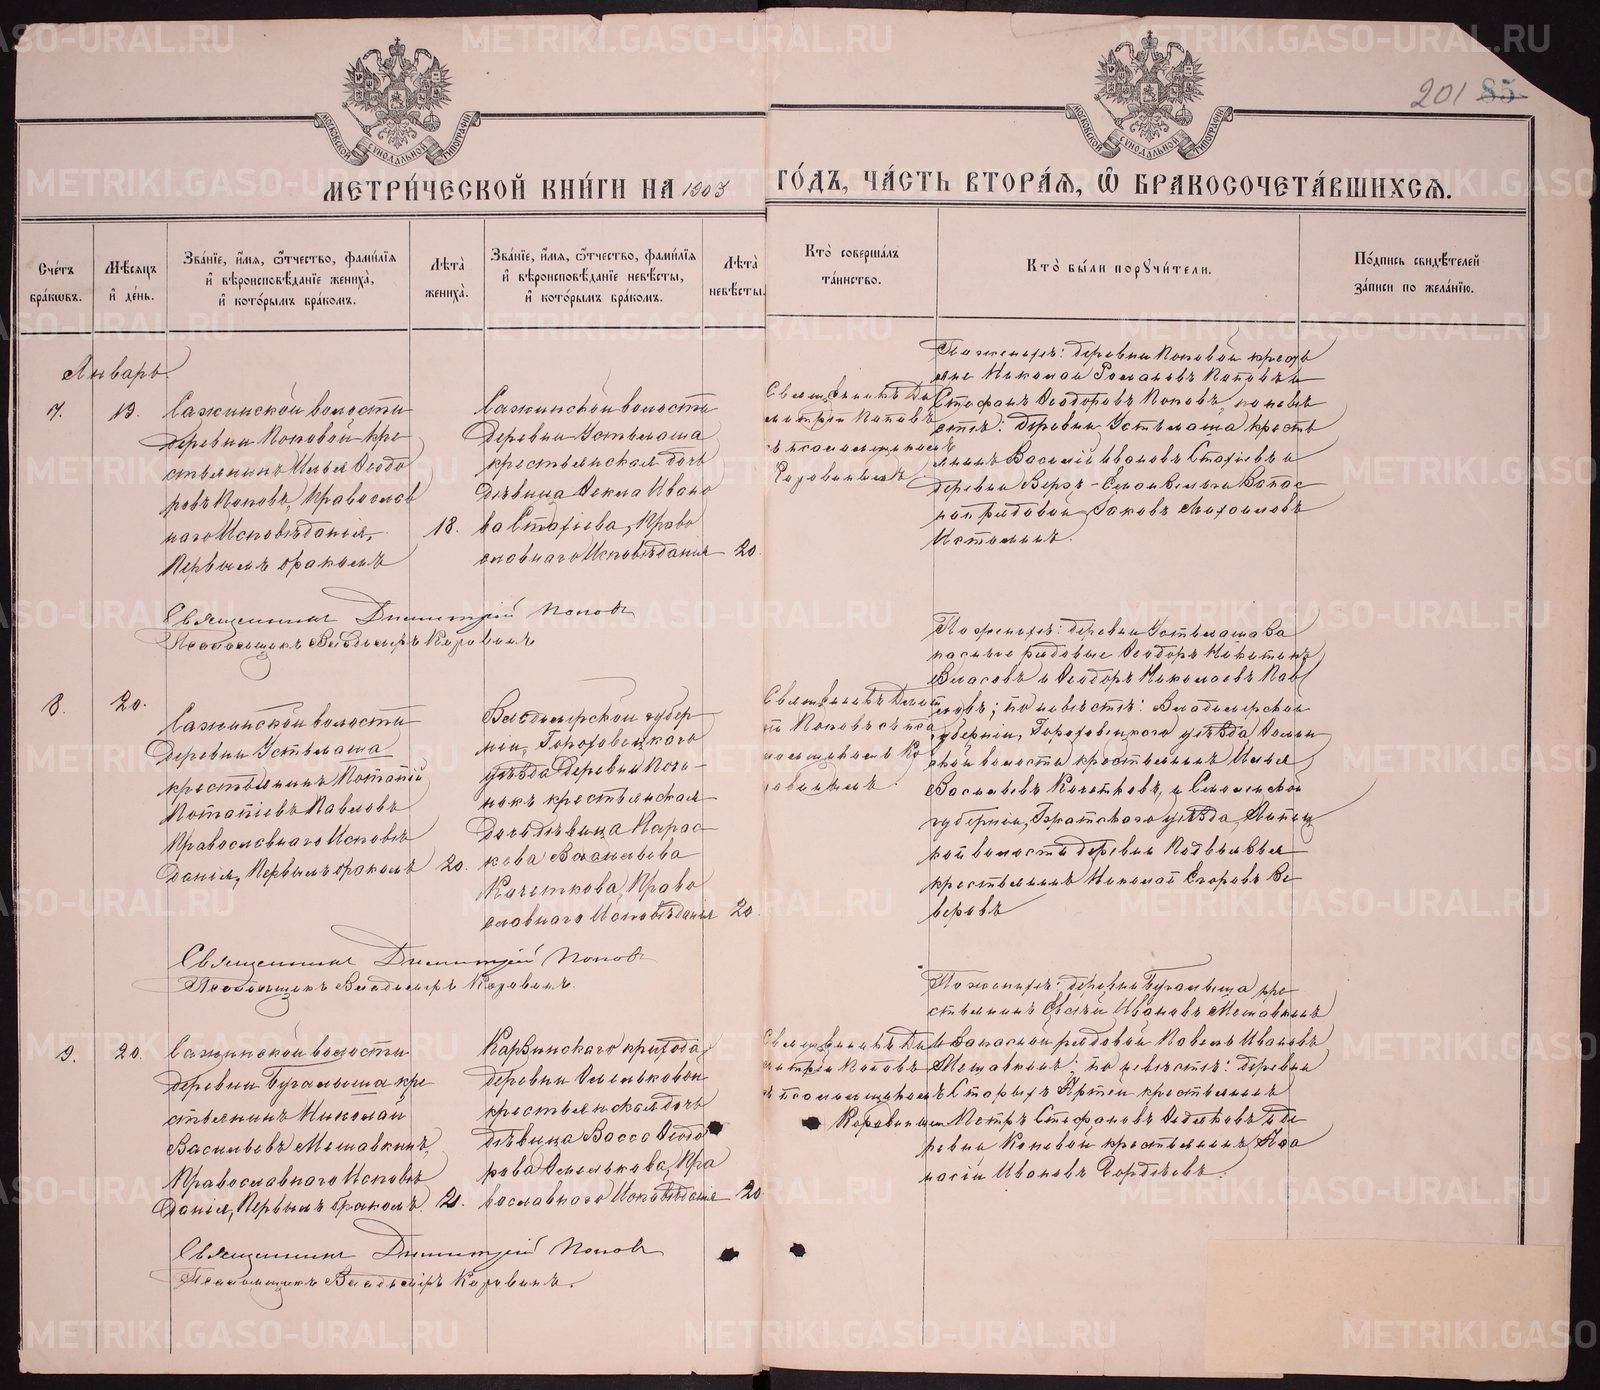 201 85
МОСКОВСКОЙ СѴНОДАЛЬНОЙ ТИПОГРАФІИ
МОСКОВСКОЙ СѴНОДАЛЬНОЙ ТИПОГРАФІИ
МЕТРИ́ЧЕСКОЙ КНИ́ГИ НА 1903 ГО́ДЪ, ЧА́СТЬ ВТОРА́Я, Ѽ БРАКОСОЧЕТА́ВШИХСЯ.
Сче́тъ
бра́кωвъ.
Мѣ́сяцъ
и҆ де́нь.
Зва́нїе, и҆́мя, ѻ҆́тчество, фами́лїя
и҆ вѣроисповѣ́данїе жениха̀,
и҆ кото́рымъ бра́комъ.
Лѣта̀
жениха̀.
Зва́нїе, и҆́мя, ѻ҆́тчество, фами́лїя
и҆ вѣроисповѣ́данїе невѣ́сты,
и҆ кото́рымъ бра́комъ.
Лѣта̀
невѣ́сты.
Кто̀ соверша́лъ
та́инство.
Кто̀ бы́ли порꙋчи́тели.
По́дпись свидѣ́телей
за́писи по жела́нїю.
Январь
7.
13.
Сажинской волости
деревни Поповой кре
стьянинъ Илья Ѳеодо
ровъ Поповъ, Православ
наго Исповѣданія,
Первымъ бракомъ
18.
Сажинской волости
деревни Устьмаша
крестьянская дочь
дѣвица Ѳекла Ивано
ва Стахіева, Право
славнаго Исповѣданія
20.
Священникъ Ди
митрій Поповъ
съ псаломщикомъ
Коровинымъ
По женихѣ: деревни Поповой крестья
не Николай Романовъ Поповъ и
Стефанъ Ѳеодоровъ Поповъ, по невѣ
стѣ: деревни Устьмаша кресть
янинъ Василій Ивановъ Стахіевъ и
деревни Запас
ный рядовой Іаковъ
Священникъ Димитрій Поповъ
Псаломщикъ Владимиръ Коровинъ
8.
20.
Сажинской волости
деревни Устьмаша
крестьянинъ Потапій
Потапіевъ Павловъ
Православнаго Исповѣ
данія, Первымъ бракомъ
20.
Владимирской губер
ніи, Гороховецкаго
уѣзда деревни
крестьянская
дочь дѣвица Парас
кева Васильева
Кочеткова, Право
славнаго Исповѣданія
20.
Священникъ Димит
ій Поповъ съ пса
ломщикомъ Ко
ровинымъ
По женихѣ: деревни Устьмаша За
пасные рядовые Ѳеодоръ Никитинъ
Власовъ и Ѳеодоръ Николаевъ Пав
ловъ; по невѣстѣ: Владимирской
губерніи, Гороховецкаго уѣзда
волости крестьянинъ Илья
Васильевъ Кочетковъ, и Смоленской
губерніи, уѣзда,
волости деревни
крестьянинъ Николай Егоровъ
Священникъ Димитрій Поповъ
Псаломщикъ Владимиръ Коровинъ.
9.
20.
Сажинской волости
деревни Бугалыша кре
стьянинъ Николай
Васильевъ Мешавкинъ,
Православнаго Исповѣ
данія, Первымъ бракомъ.
21.
Карзинскаго прихода,
деревни Омельковой
крестьянская дочь
дѣвица Васса Ѳеодо
рова Омелькова, Пра
вославнаго Исповѣданія
20
Священникъ Ди
митрій Поповъ
съ псаломщикомъ
Коровинымъ
По женихѣ: деревни Бугалыша кре
стьянинъ Ивановъ Мешавкинъ
и Запасной рядовой Павелъ Ивановъ
Мешавкинъ; по невѣстѣ: деревни
Старыхъ Артей крестьянинъ
Петръ Стефановъ и де
ревни Коневой крестьянинъ Аѳа
насій Ивановъ Гордѣевъ.
Священникъ Димитрій Поповъ
Псаломщикъ Владимиръ Коровинъ.
METRIKI.GASO-URAL.RU